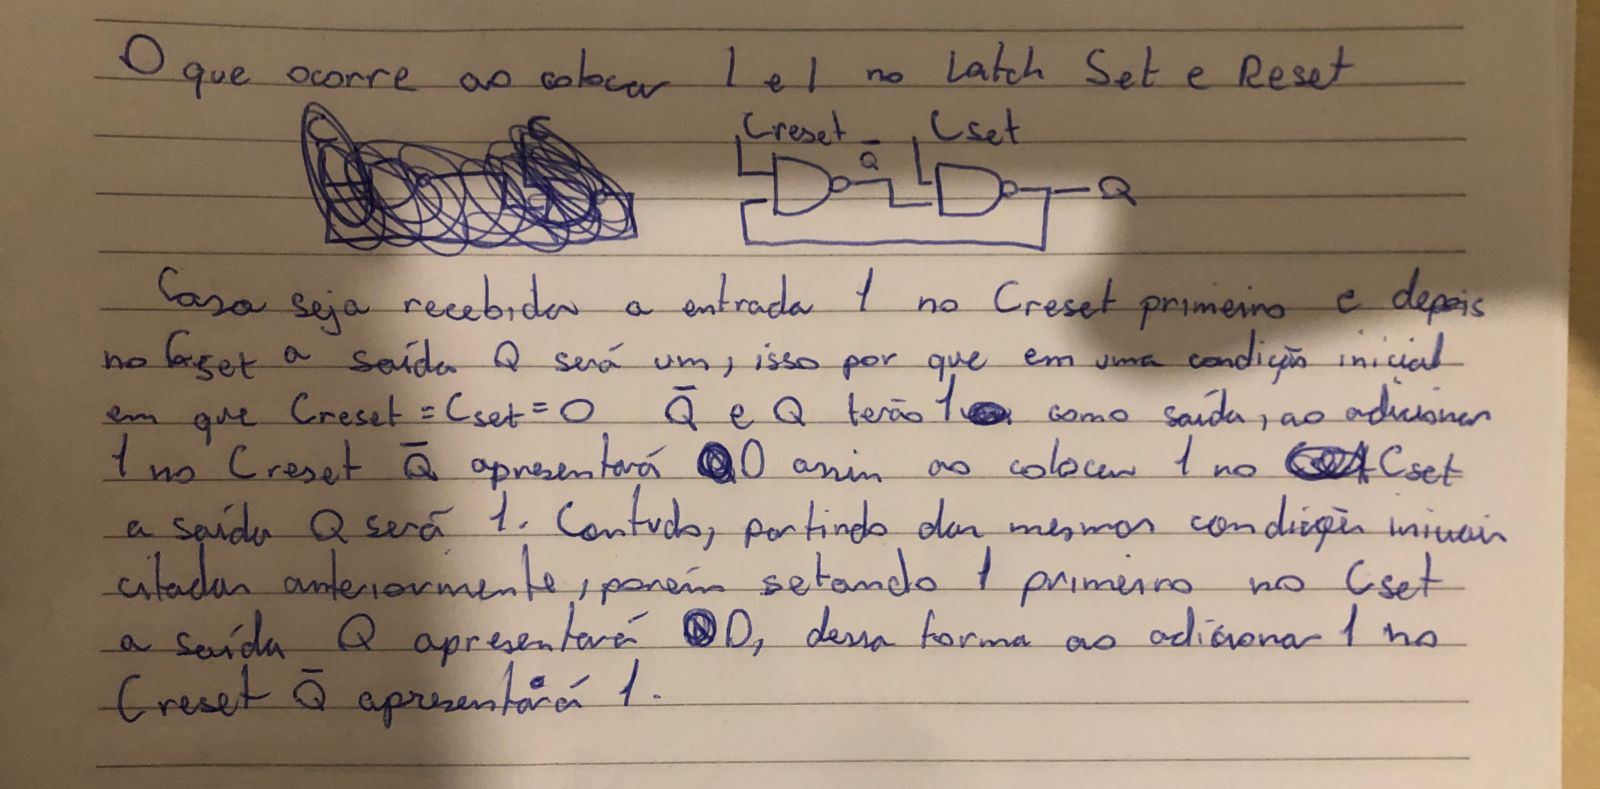 O que ocorre ao colocar 1 e 1 no Latch Set e Reset
Creset Q̄ Cset
Q
Caso seja recebida a entrada 1 no Creset primeiro e depois
no Cset a saída Q será um, isso por que em uma condição inicial
em que Creset = Cset = 0 Q̄ e Q terão 1 como saída, ao adicionar
1 no Creset Q̄ apresentará 0 assim ao colocar 1 no Cset
a saída Q será 1. Contudo, partindo das mesmas condições iniciais
citadas anteriormente, porém setando 1 primeiro no Cset
a saída Q apresentará 0, dessa forma ao adicionar 1 no
Creset Q̄ apresentará 1.